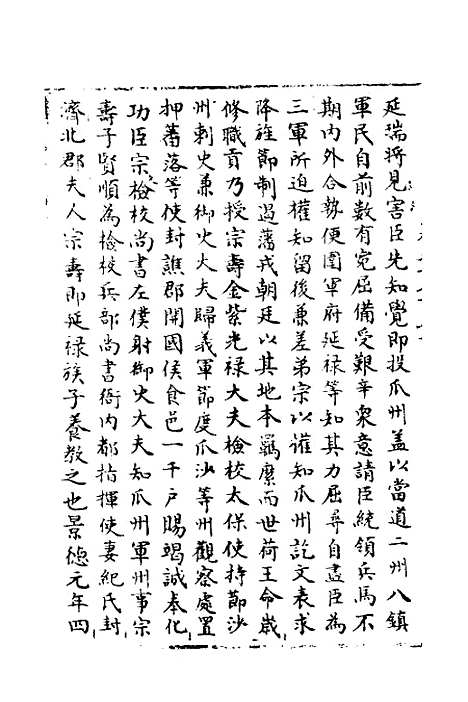 延瑞将見害臣先知覺即投瓜州盖以當道二州八鎮
軍民自前數有宛屈備受艱辛衆意請臣統領兵馬不
期内外合勢便圍軍府延禄等知其力屈尋自盡臣為
三軍所迫權知留後兼差弟宗以權知瓜州訖文表求
降旌節制遏藩戎朝廷以其地本羈縻而世荷王命嵗
修職貢乃授宗壽金紫光禄大夫檢校太保使持節沙
州刺史兼御史大夫歸義軍節度瓜沙等州觀察處置
押蕃落等使封譙郡開國侯食邑一千戸賜竭誠奉化
功臣宗檢校尚書左僕射御史大夫知瓜州軍州事宗
壽子賢順為檢校兵部尚書衙内都指揮使妻紀氏封
濟北郡夫人宗壽即延禄族子養教之也景徳元年四